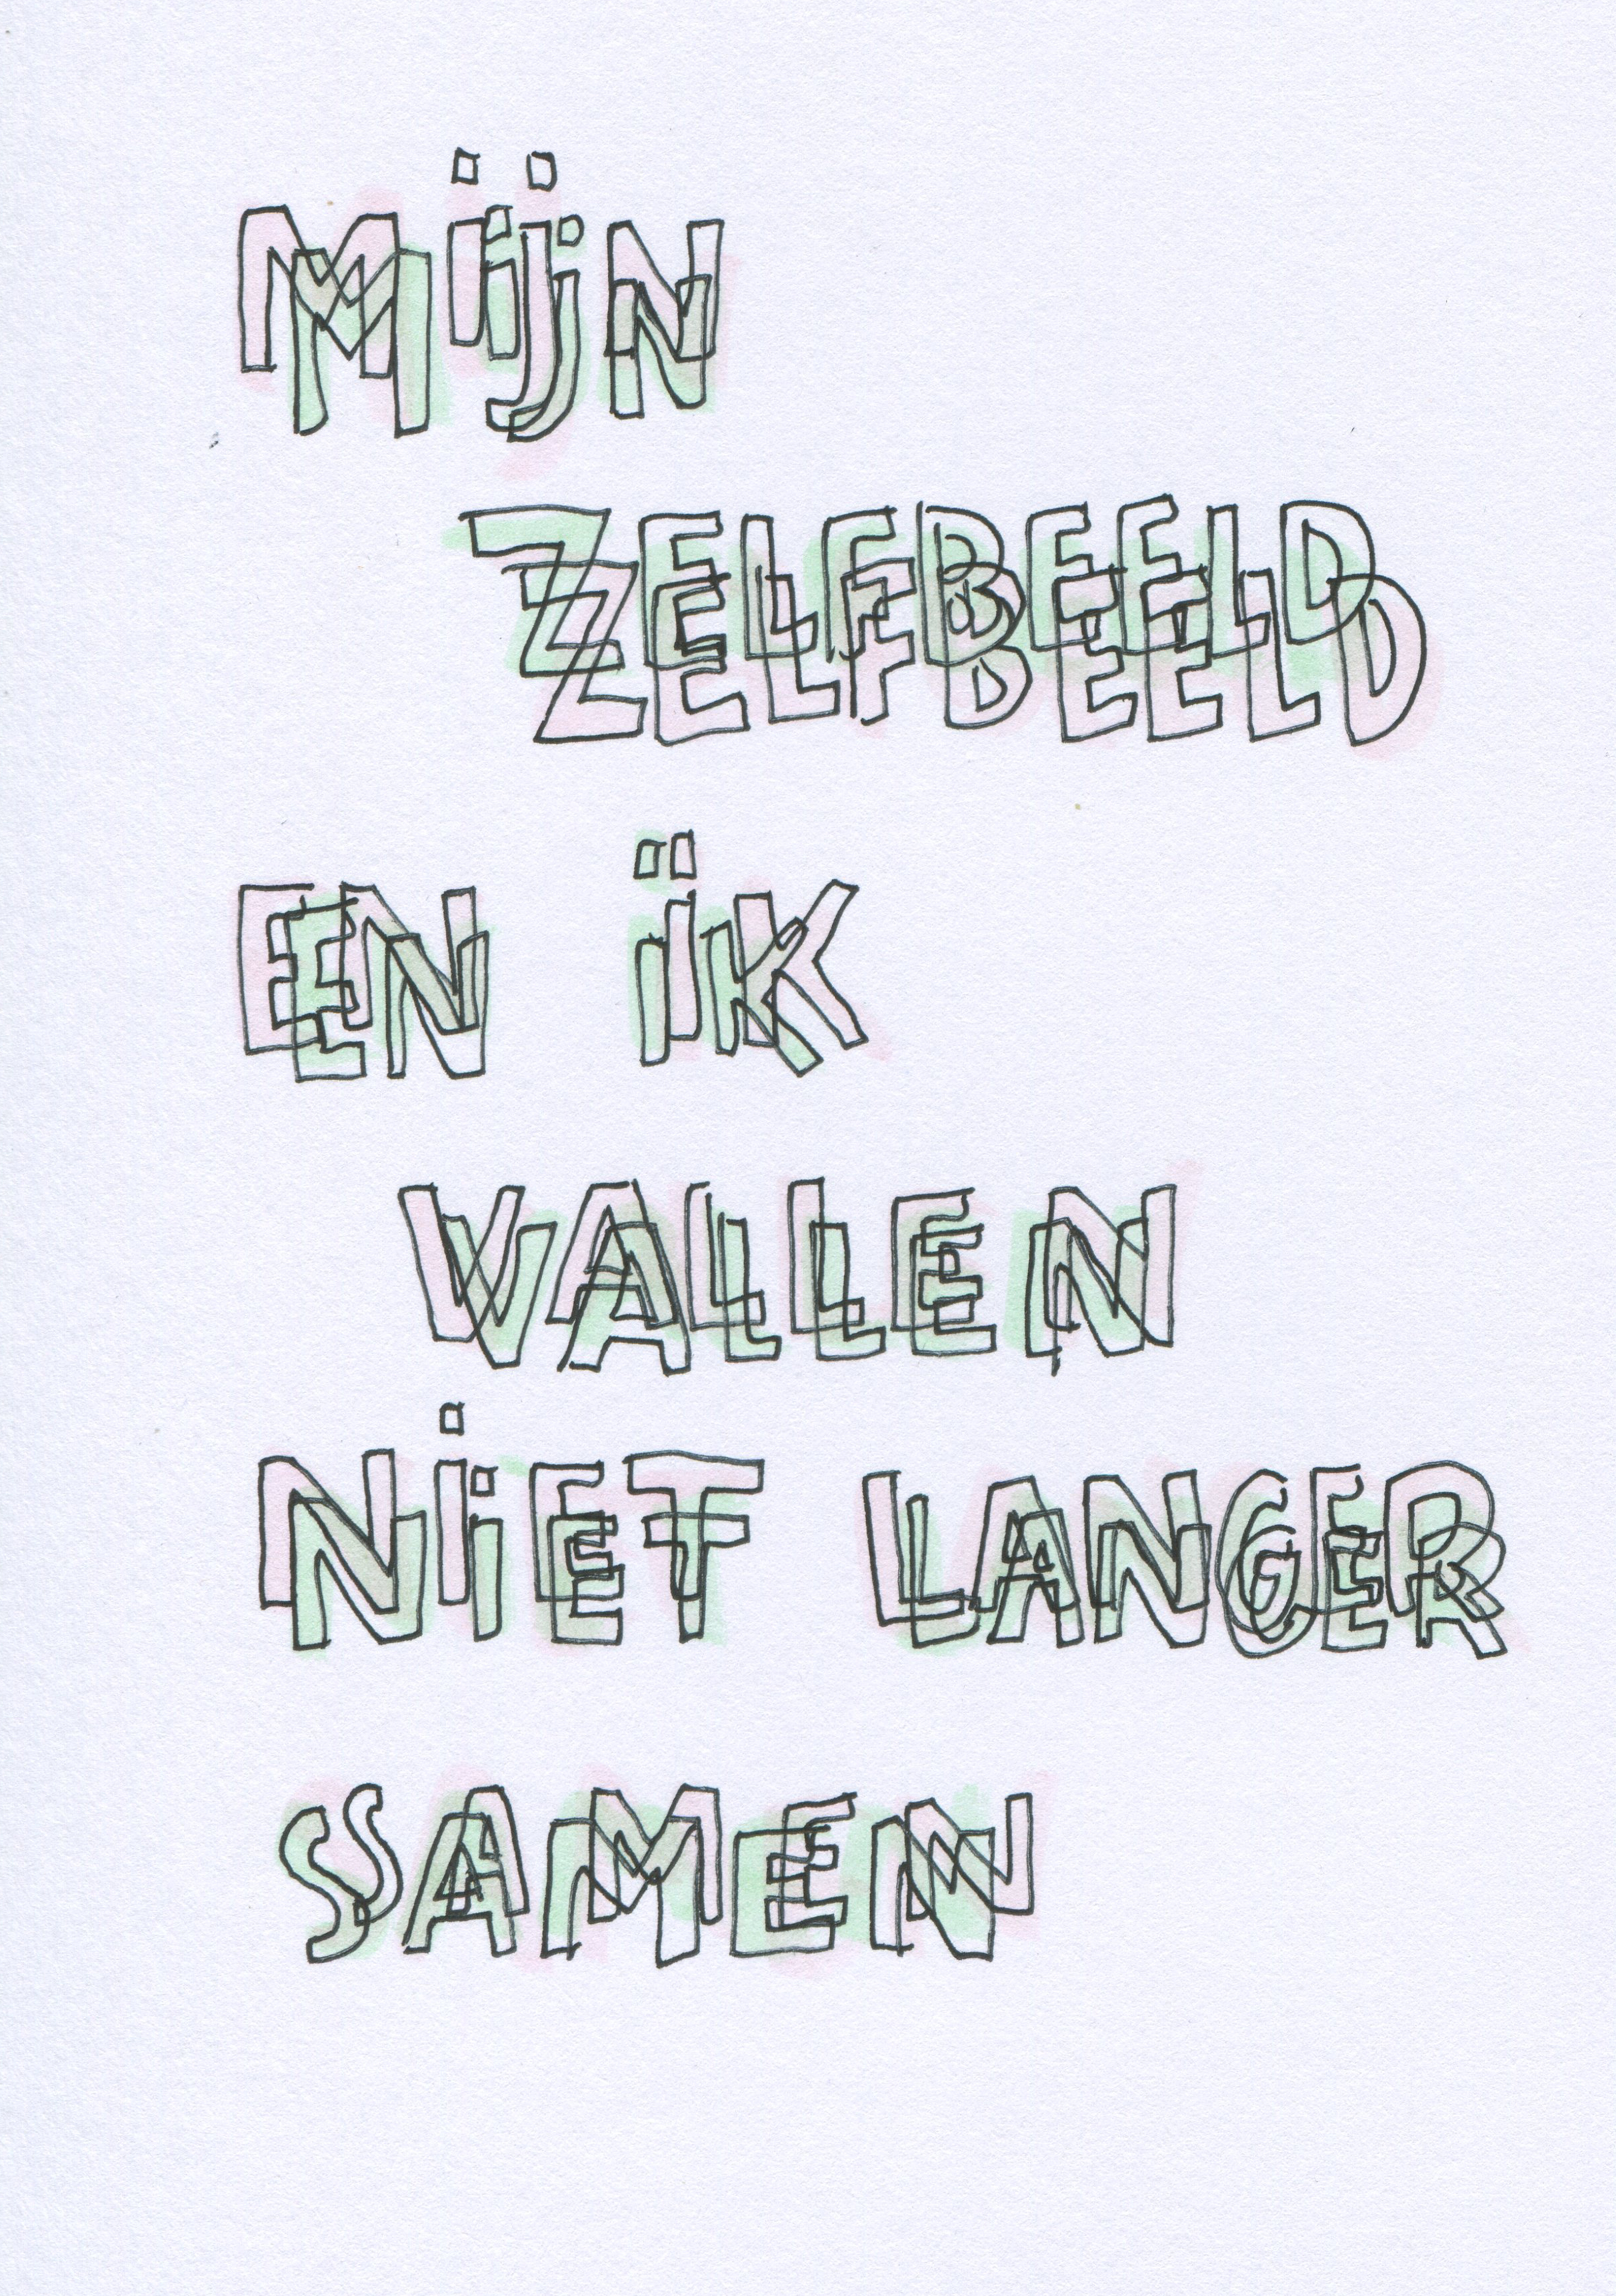 MijN
ZELFBEELD
EN iK
VALLEN
NiET LANGER
SAMEN